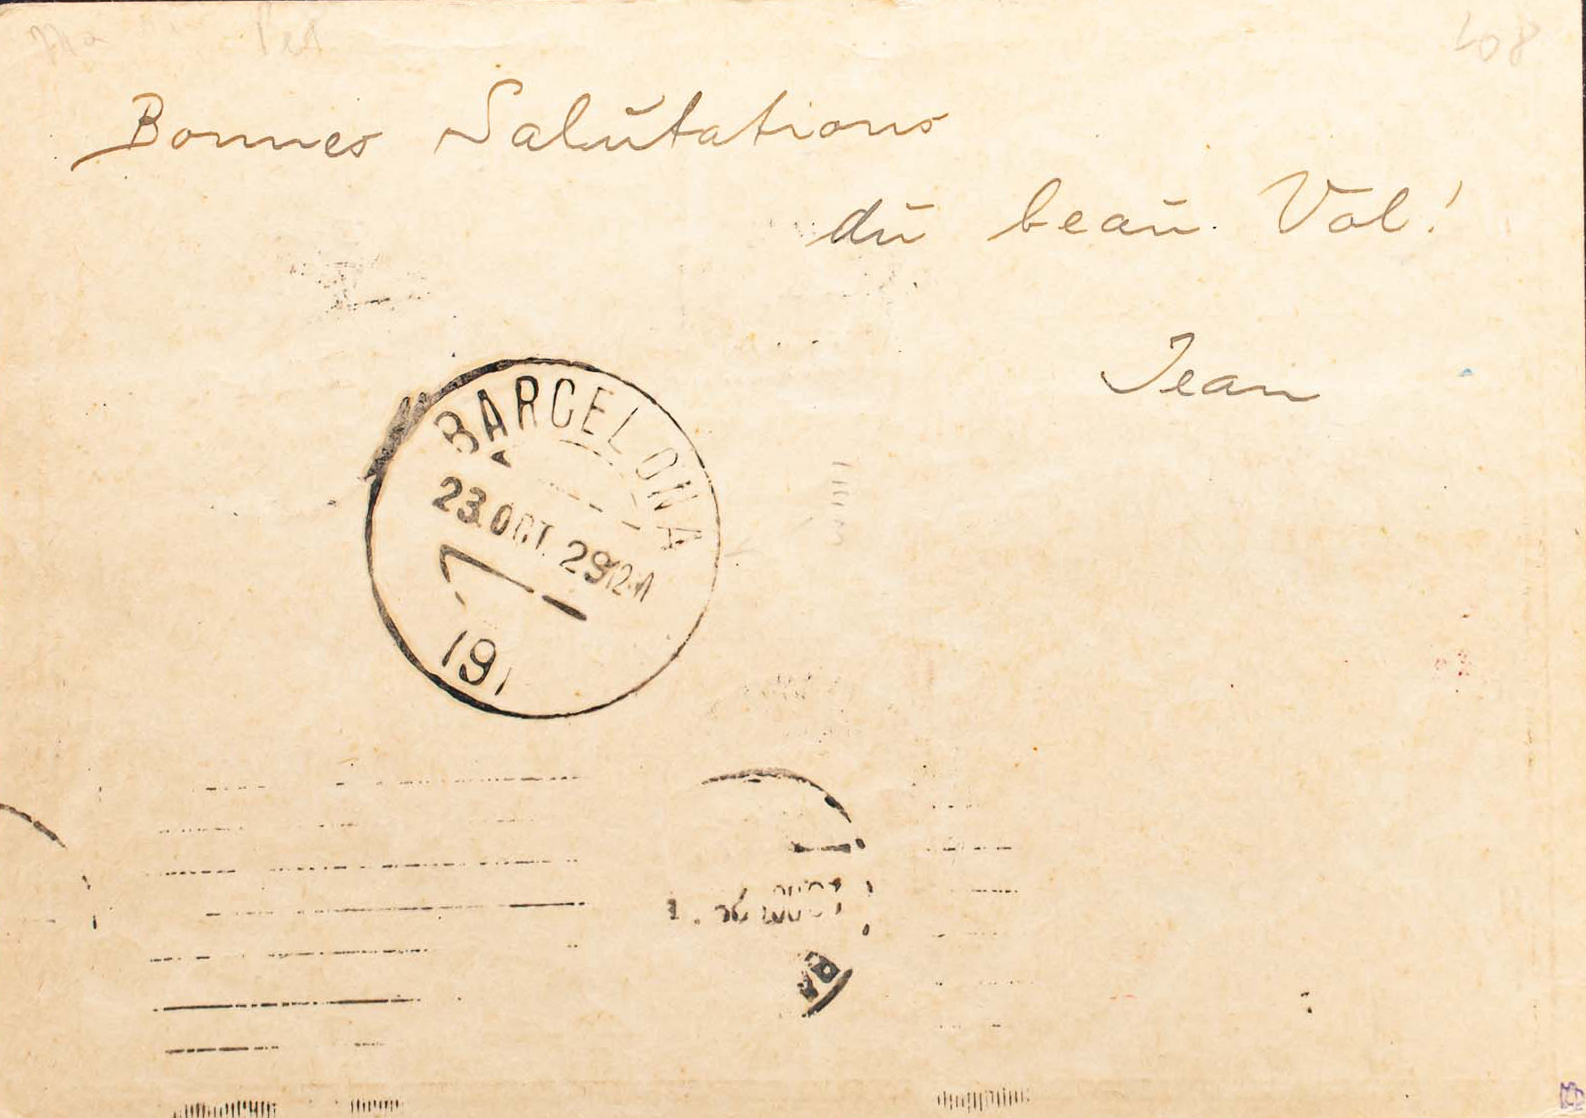 108
Bonnes Salutations
du beau Vol!
Jean
BARCELONA
23.OCT.29